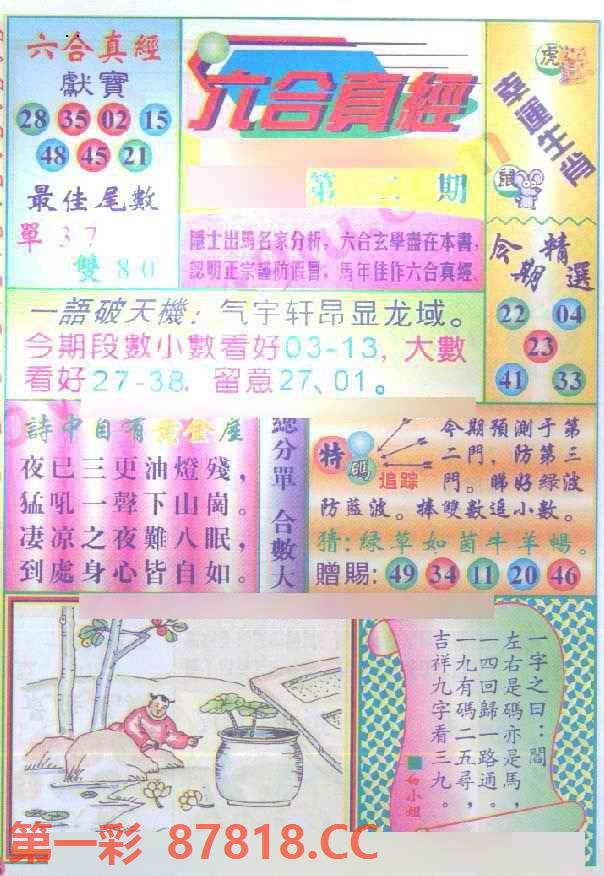 六合真經
獻寶
28 35 02 15
48 45 21
最佳尾數
單37
雙80
六合真經
第二期
隱士出馬名家分析，六合玄學盡在本書，
認明正宗謹防假冒，馬年佳作六合真經。
虎
幸運生肖
鼠
今期精選
22 04
23
41 33
一語破天機：气宇轩昂显龙域。
今期段數小數看好03-13，大數
看好27-38．留意27、01。
詩中自有黃金屋
夜已三更油燈殘，
猛吼一聲下山崗。
凄凉之夜難入眠，
到處身心皆自如。
總分單 合數大
特碼
追踪
今期預測于第
二門，防第三
門。睇好绿波
防藍波。捧雙數追小數。
猜：绿草如茵牛羊暢。
贈賜：49 34 11 20 46
一字之曰：閣
左右是碼亦是馬，
一四回歸一路通。
一九有碼二五尋，
吉祥九字看三九。
小姐
第一彩 87818.CC